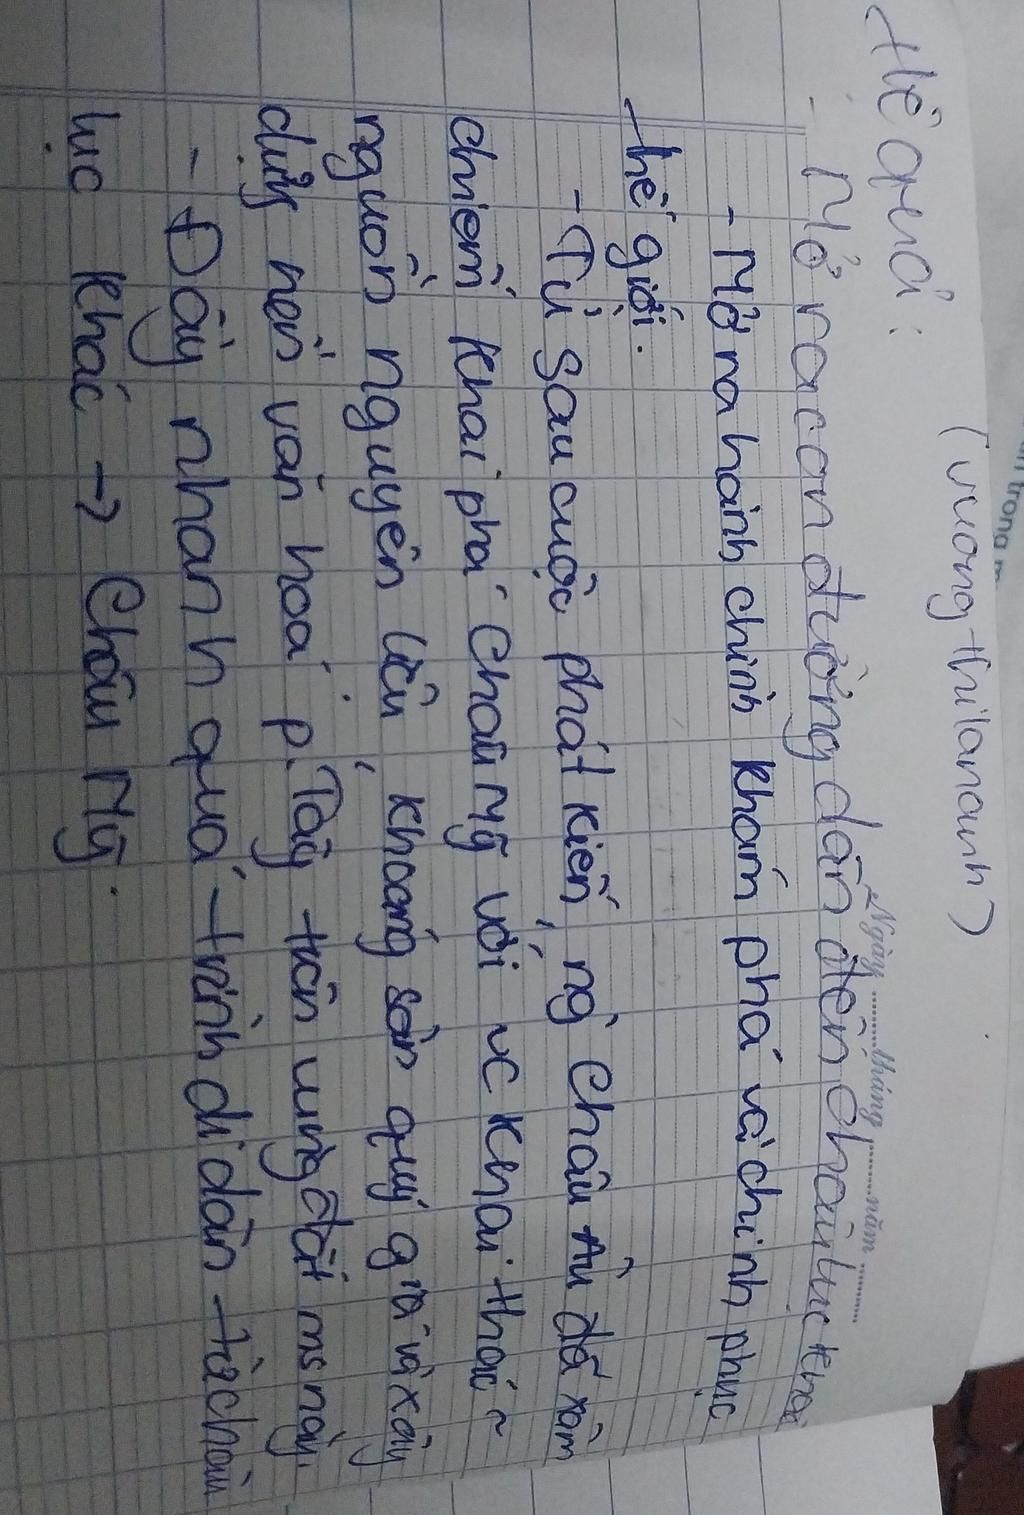 (vuong thi lananh)
Hệ quả:
Ngày ........ tháng ........ năm ........
- Mở ra con đường dẫn đến châu lục khác
- Mở ra hành chình khám phá và chinh phục
thế giới.
- Từ sau cuộc phát kiến, ng` Châu Âu đã xâm
chiếm, khai phá Châu Mỹ với vc khai thác ~
nguồn nguyên liệu, khoáng sản quý giá và xây
dựng nền văn hoá p.Tây trên vùng đất ms này.
- Đẩy nhanh quá trình di dân từ châu
lục khác → Châu Mỹ.